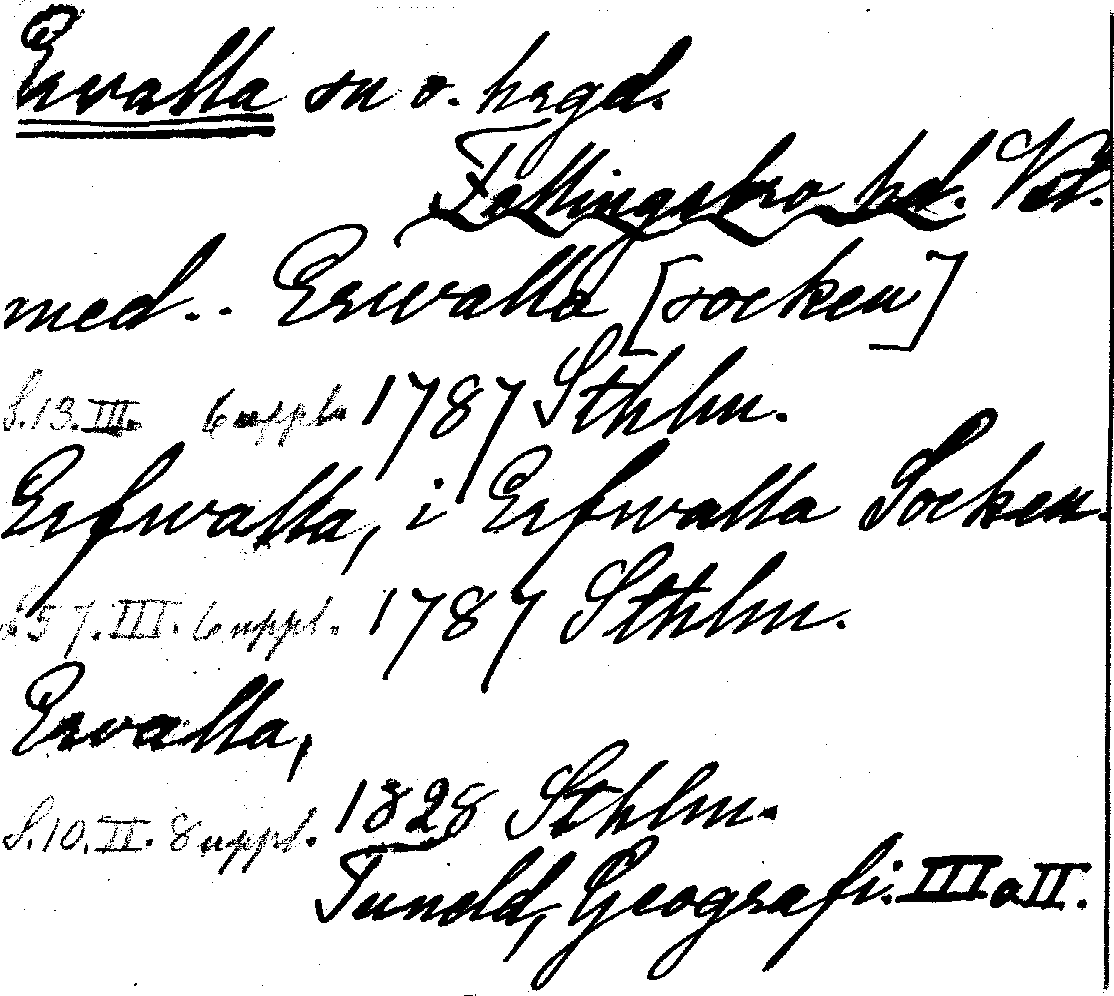 Ervalla sn o. hrgd.
Fellingsbro hd. Vstl.
med.. Erwalla [socken]
S.13.III. 6 uppl. 1787 Sthlm.
Erfwalla, i Erfwalla Socken.
S.57.III. 6 uppl. 1787 Sthlm.
Ervalla,
S.10.II. 8 uppl. 1828 Sthlm.
Tuneld, Geografi. III o II.